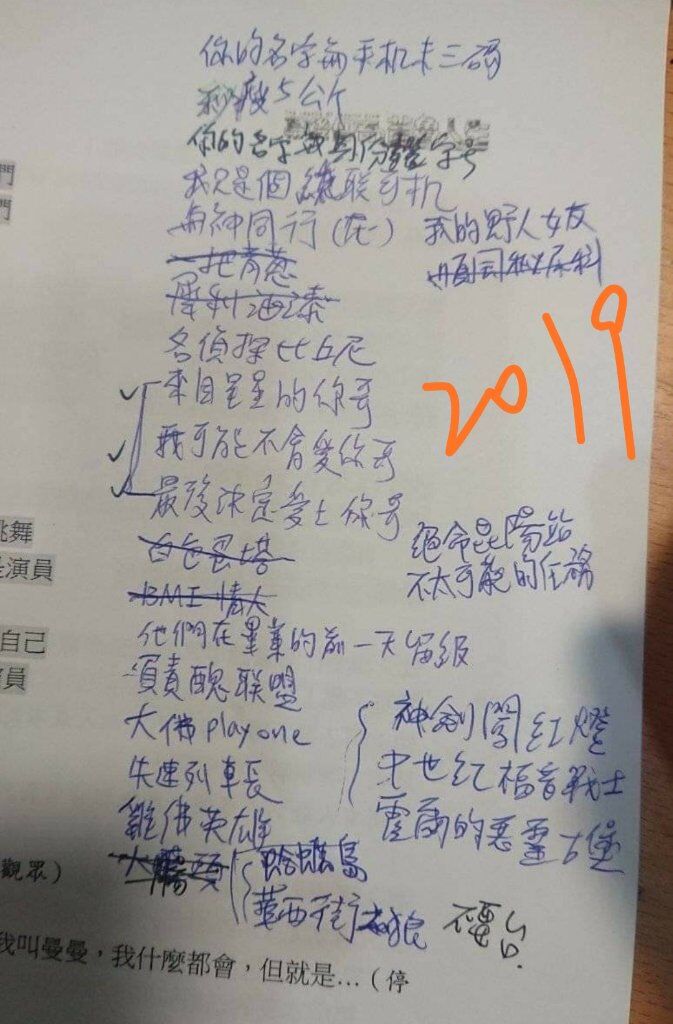 你的名字每手机末三碼
秒瘦5公斤
你的名字或身份證字号
我只是個總聯司机
與神同行(在)
我的野人女友
一把青蔥
犀利油漆
名偵探比丘尼
來自星星的你哥
我可能不會愛你哥
最後決定愛上你哥
2019
絕命
不太可能的任務
白色巨塔
BMI情人
他們在畢業的前一天留級
負責醜聯盟
大佛play one
失速列車長
雞佛英雄
神劍闖紅燈
中世紀福音戰士
霍爾的惡靈古堡
蛤蟆島
華西街之狼
不要台
門
們
跳舞
是演員
自己
演員
觀眾)
我叫曼曼,我什麼都會,但就是...(停